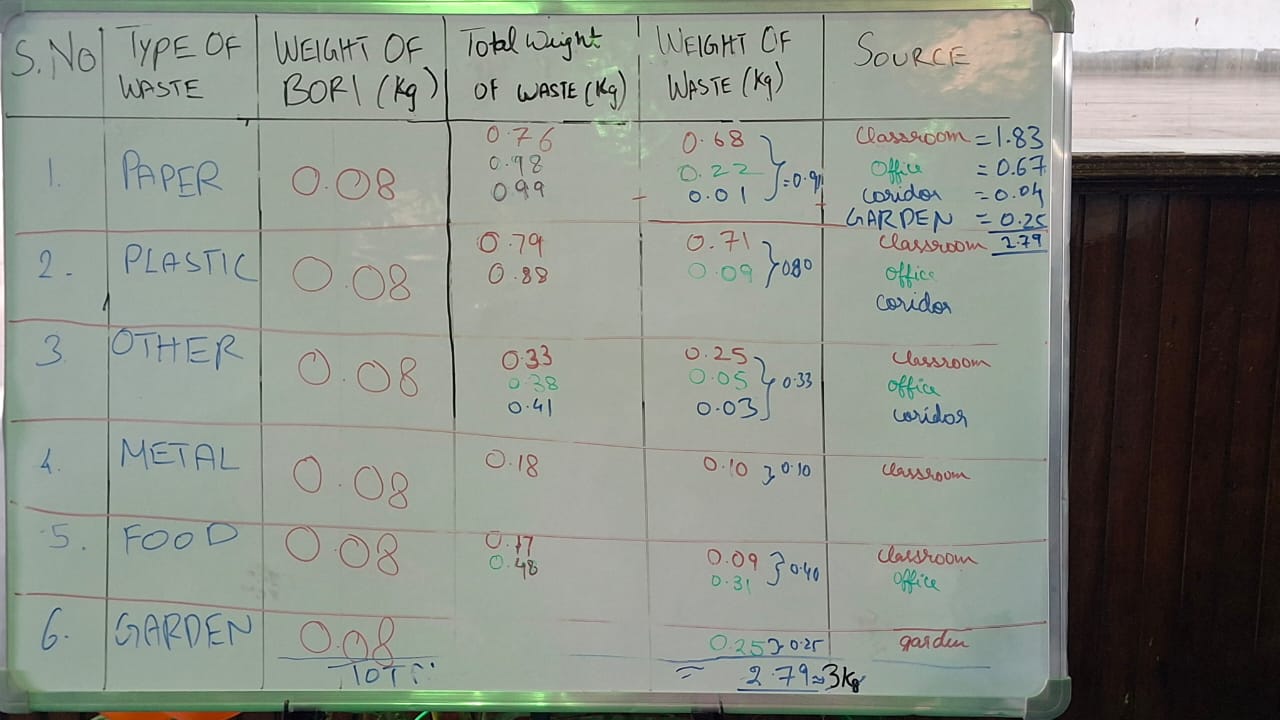 S.No TYPE OF WASTE WEIGHT OF BORI (Kg) Total Weight OF WASTE (Kg) WEIGHT OF WASTE (Kg) SOURCE
1. PAPER 0.08 0.76 0.68 Classroom = 1.83
0.98 0.22 Office = 0.67
0.99 0.01 } = 0.91 coridor = 0.04
GARDEN = 0.25
2.79
2. PLASTIC 0.08 0.79 0.71 Classroom
0.88 0.09 } 0.80 office
coridor
3. OTHER 0.08 0.33 0.25 Classroom
0.38 0.05 } 0.33 office
0.41 0.03 coridor
4. METAL 0.08 0.18 0.10 } 0.10 Classroom
5. FOOD 0.08 0.17 0.09 Classroom
0.48 0.31 } 0.40 office
6. GARDEN 0.08 0.25 } 0.25 garden
= 2.79 ≈ 3 Kg